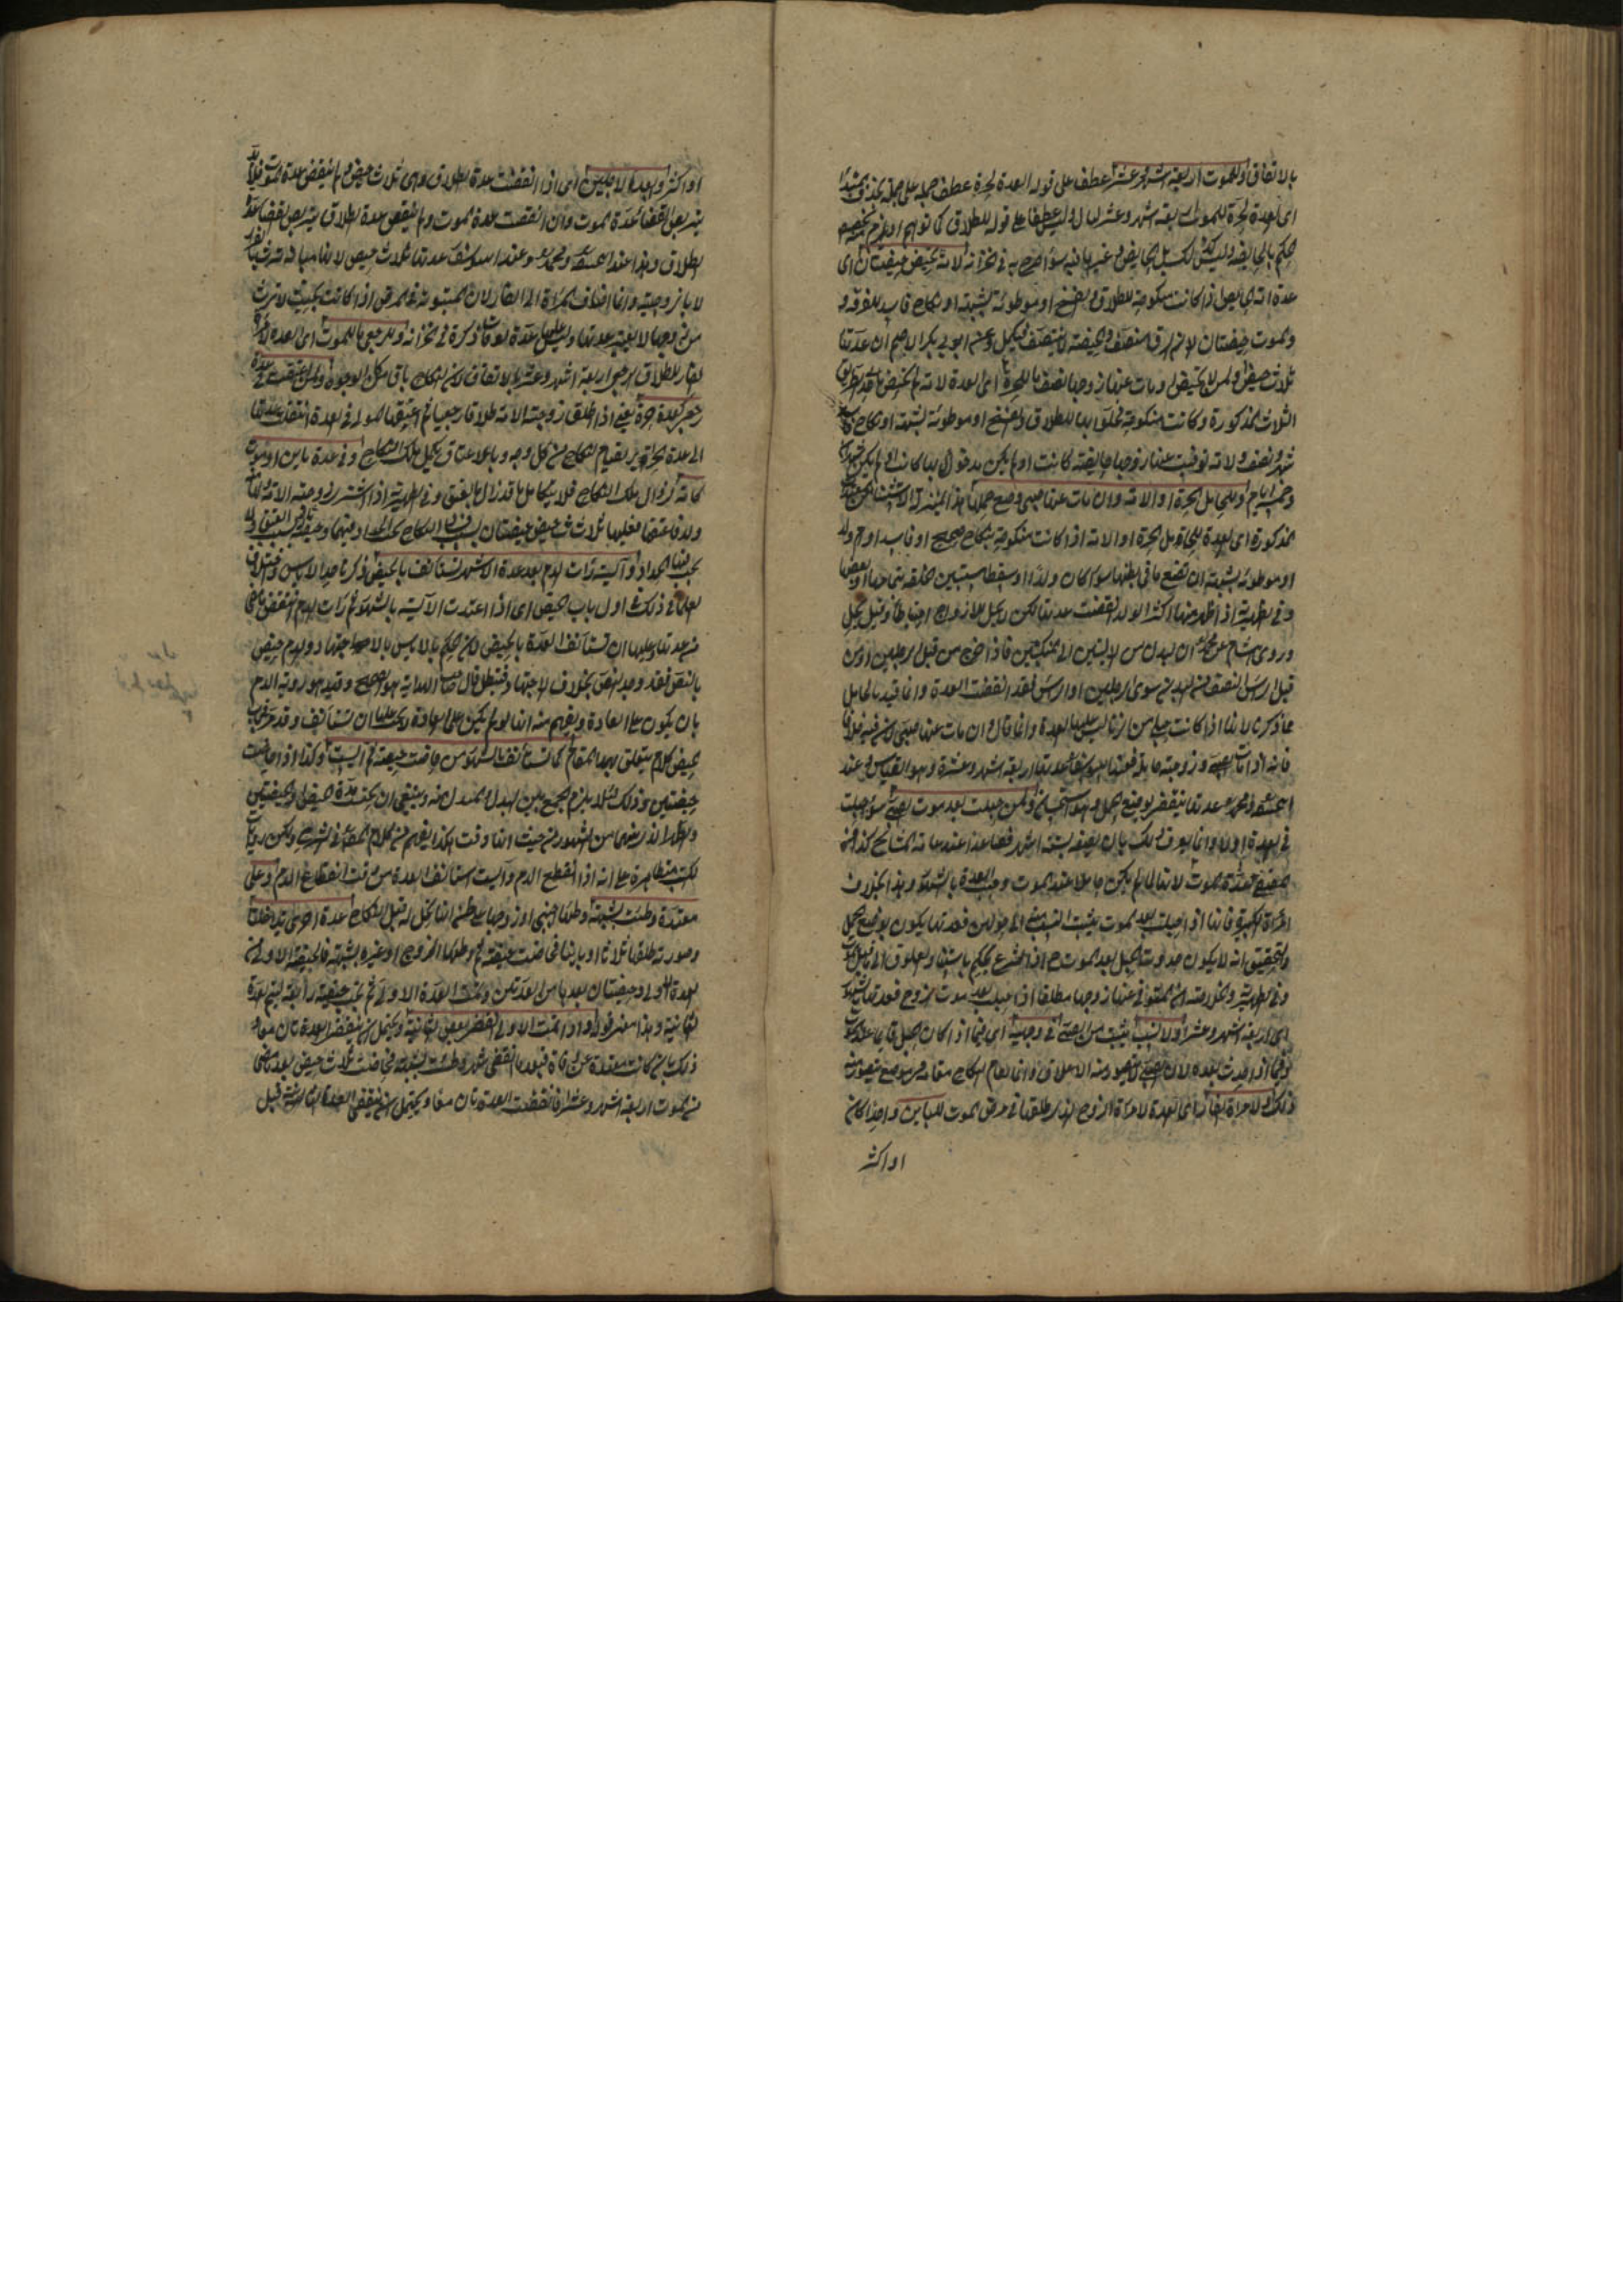 بالاتفاق وللموت اربعة اشهر وعشر عطف على قوله العدة للحرة عطف جملة على جملة بحذف المبتدأ
اى العدة للحرة للموت اربعة اشهر وعشر ليال وليس عطفا على قوله للطلاق كما توهم
الحكم بالحايض وليس كذلك بل الحايض وغيرها فيه سواء صرح به فى الخزانة ولامة تحيض حيضتان اى
عدة امة تحيض اذا كانت منكوحة للطلاق والفسخ او موطوئة بشبهة او نكاح فاسد للفرقة و
الموت حيضتان لان الرق منصف والحيضة لا تتنصف فيكمل وعند ابى بكر الاصم ان عدتها
ثلاث حيض ولمن لا تحيض او مات عنها زوجها نصف ما للحرة اى العدة لامة لم تحيض
الثلاث المذكورة وكانت منكوحة مخلوا بها للطلاق والفسخ او موطوئة بشبهة او نكاح فاسد
شهر ونصف ولامة توفيت عنها زوجها حايضة كانت او لم يكن مدخول بها كانت او لم يكن شهران
وخمسة ايام وللحامل الحرة او الامة وان مات عنها صبى وضع حملها هذا
المذكورة اى العدة للحامل الحرة او الامة اذا كانت منكوحة بنكاح صحيح او فاسد او ام ولد
او موطوئة بشبهة ان تضع ما فى بطنها سواء كان ولدا او سقطا مستبين الخلقة
وفى الظهيرية اذا ظهر منها اكثر الولد انقضت عدتها لكن لا يحل للازواج احتياطا وقيل يحل
وروى هشام عن محمد ان البدن من الاليتين الى المنكبين فاذا خرج من قبل الرجلين او من
قبل الراس النصف من البدن سوى الرجلين او الراس فقد انقضت العدة وانما قيد بالحامل
مما ذكرنا لانها اذا كانت حبلى من الزنا ليس عليها العدة وانما قال وان مات عنها صبى لان فيه خلافا
فانه اذا مات الصبى وزوجته حامل فعند ابى يوسف عدتها اربعة اشهر وعشرة وهو القياس وعند
ابى حنيفة ومحمد عدتها تنقضى بوضع الحمل وهو استحسان ولمن حبلت بعد موت الصبى سواء حبلت
فى العدة او لا وانما يعرف ذلك بان يضعه لستة اشهر فصاعدا عند عامة المشايخ كذا فى
عدة الموت لانها لما لم يكن حاملا عند الموت وجب العدة بالشهور وهذا بخلاف
امراة الكبير فانها اذا حبلت بعد الموت يثبت النسب منه الى حولين فعدتها يكون بوضع الحمل
والتحقيق انه لا يكون حدوث الحبل بعد الموت
وفى الظهيرية والخلاصة ان المتوفى عنها زوجها مطلقا اذا حبلت بعد موت الزوج فعدتها بالشهور
اى اربعة اشهر وعشرا ولا نسب يثبت من الصبى فى وجهيه اى فيما اذا كان الحبل قايما عند الموت
وفيما اذا حدث بعده لان الصبى لا يتصور منه الاعلاق وانما يقام النكاح مقامه فى موضع يتصور منه
ذلك ولامراة الفار اى العدة لامراة الزوج الذى طلقها فى مرض الموت للباين واحدا كان
او اكثر
او اكثر ابعد الاجلين اى اذا انقضت عدة الطلاق وهى ثلاث حيض ولم تنقض عدة الموت فلا بد
تتربص انقضاء عدة الموت وان انقضت عدة الموت ولم تنقض عدة الطلاق تتربص انقضاء عدة
الطلاق وهذا عند ابى حنيفة ومحمد وعند ابى يوسف عدتها ثلاث حيض لانها مبانة
لا بالزوجية وانما اضاف المراة الى الفار لان المبتوتة فى المرض اذا كانت بحيث لا ترث
من زوجها لا تعتبر عدتها وليس عليها عدة الوفاة ذكره فى الخزانة وللرجعى ما للموت اى العدة لامراة
الفار للطلاق الرجعى اربعة اشهر وعشر بالاتفاق لان النكاح باق من كل الوجوه ولمن اعتقت فى عدة
رجعى كعدة حرة يعنى اذا طلق زوجته الامة طلاقا رجعيا ثم اعتقها المولى فى العدة انتقلت عدتها
الى عدة الحراير لقيام النكاح من كل وجه وبالاعتاق يكمل ملك النكاح وفى عدة باين او موت
كامة لزوال ملك النكاح فلا يتكامل ما قد زال بالعتق وفى الظهيرية اذا اشترى زوجته الامة
ولد فاعتقها فعليها ثلاث حيض حيضتان بسبب فساد النكاح يجب الحداد فيهما وحيضة بسبب العتق لا
يجب فيها الحداد وآيسة رات الدم بعد عدة الاشهر تستانف بالحيض ذكرنا حد الاياس واختلاف
العلماء فى ذلك فى اول باب الحيض اى اذا اعتدت الآيسة بالشهور ثم رات الدم انتقض ما مضى
من عدتها وعليها ان تستانف العدة بالحيض لان الحكم بالاياس بالاجتهاد والدم حيض
بالنص فقد وجد النص بخلاف الاجتهاد فيبطل قال صاحب الهداية هو الصحيح وقيد هو روية الدم
بان يكون على العادة ويفهم منه انها لو لم يكن على العادة لا يجب عليها ان تستانف وقد مر فى باب
الحيض كلام يتعلق بهذا المقام كما تستانف بالشهور من حاضت حيضة ثم ايست وكذا اذا حاضت
حيضتين وذلك لئلا يلزم الجمع بين البدل والمبدل منه وينبغى ان يحتسب مدة الحيض والحيضتين
والطهر الذى بينهما من الشهور
الكتب متظاهرة على انه اذا انقطع الدم وآيست استانف العدة من وقت انقطاع الدم وعلى
معتدة وطئت بشبهة وطئها اجنبى او زوجها على ظن انها تحل له قبل النكاح عدة اخرى وتداخلتا
وصورته طلقها ثلاثا او باينا فحاضت حيضة ثم وطئها الزوج او غيره بشبهة فالحيضة الاولى من
العدة الاولى وحيضتان بعدها من العدتين وتمت العدة الاولى ثم تجب حيضة رابعة ليتم العدة
الثانية وهذا معنى قوله واذا تمت الاولى انقضى بعض الثانية ويحتمل ان ينقضى العدتان معا
ذلك بان كانت معتدة عن وفاة فبعد ما انقضى شهر وطئت بشبهة فحاضت ثلاث حيض بعد ما مضى
من الموت اربعة اشهر وعشرا فانقضت العدتان معا ويحتمل ان ينقضى العدة الثانية قبل